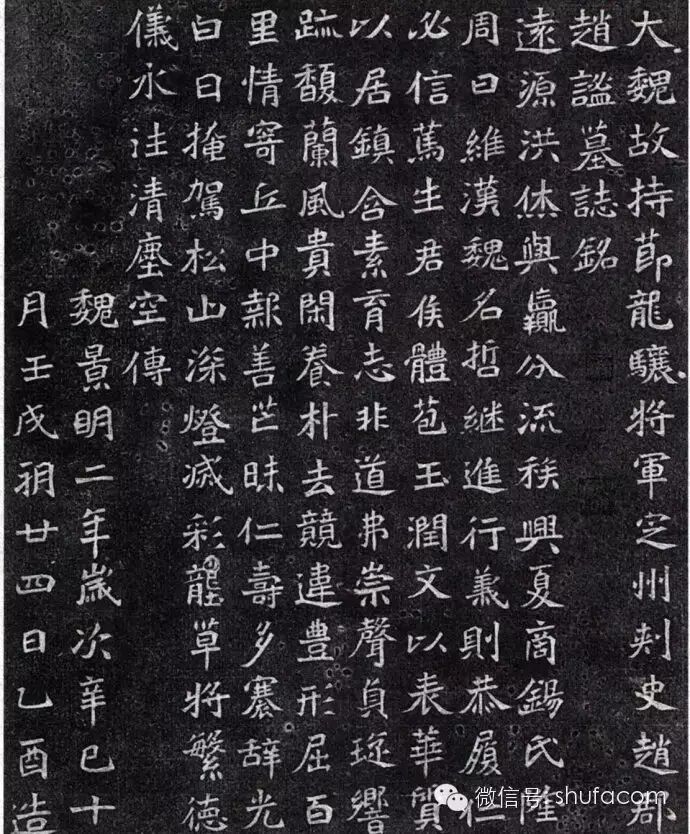 大魏故持節龍驤將軍定州刾史趙郡
趙謐墓誌銘
遠源洪休與嬴分流族興夏商錫氏隆
周曰維漢魏名哲継進行義則恭履仁
必信篤生君侯體苞玉潤文以表華質
以居鎮含素育志非道弗崇聲貞琁響
跡馥蘭風貴閑養朴去競違豊形屈百
里情寄丘中報善芒昧仁壽多褰辭光
白日掩駕松山深燈滅彩壠草將繁德
儀永往清塵空傳
魏景明二年歲次辛巳十
月壬戌朔廿四日乙酉造
微信号: shufacom